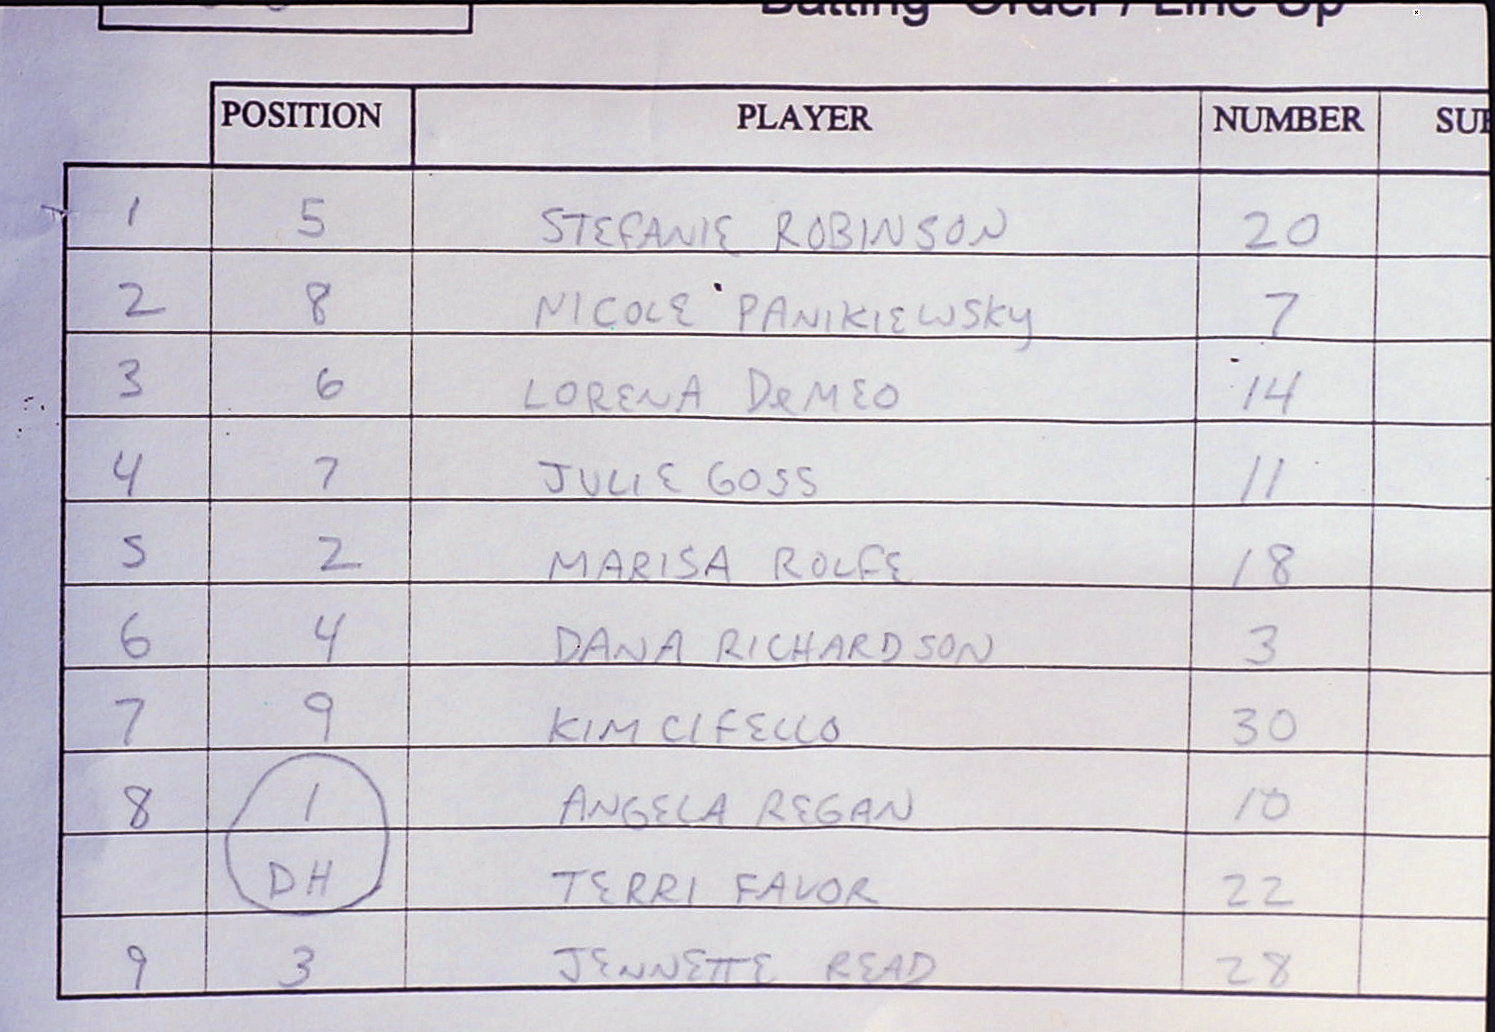 Batting Order / Line Up
POSITION PLAYER NUMBER SUB
1 5 STEFANIE ROBINSON 20
2 8 NICOLE PANIKIEWSKY 7
3 6 LORENA DeMEO 14
4 7 JULIE GOSS 11
5 2 MARISA ROLFE 18
6 4 DANA RICHARDSON 3
7 9 KIM CIFELLO 30
8 1 ANGELA REGAN 10
DH TERRI FAVOR 22
9 3 JENNETTE READ 28